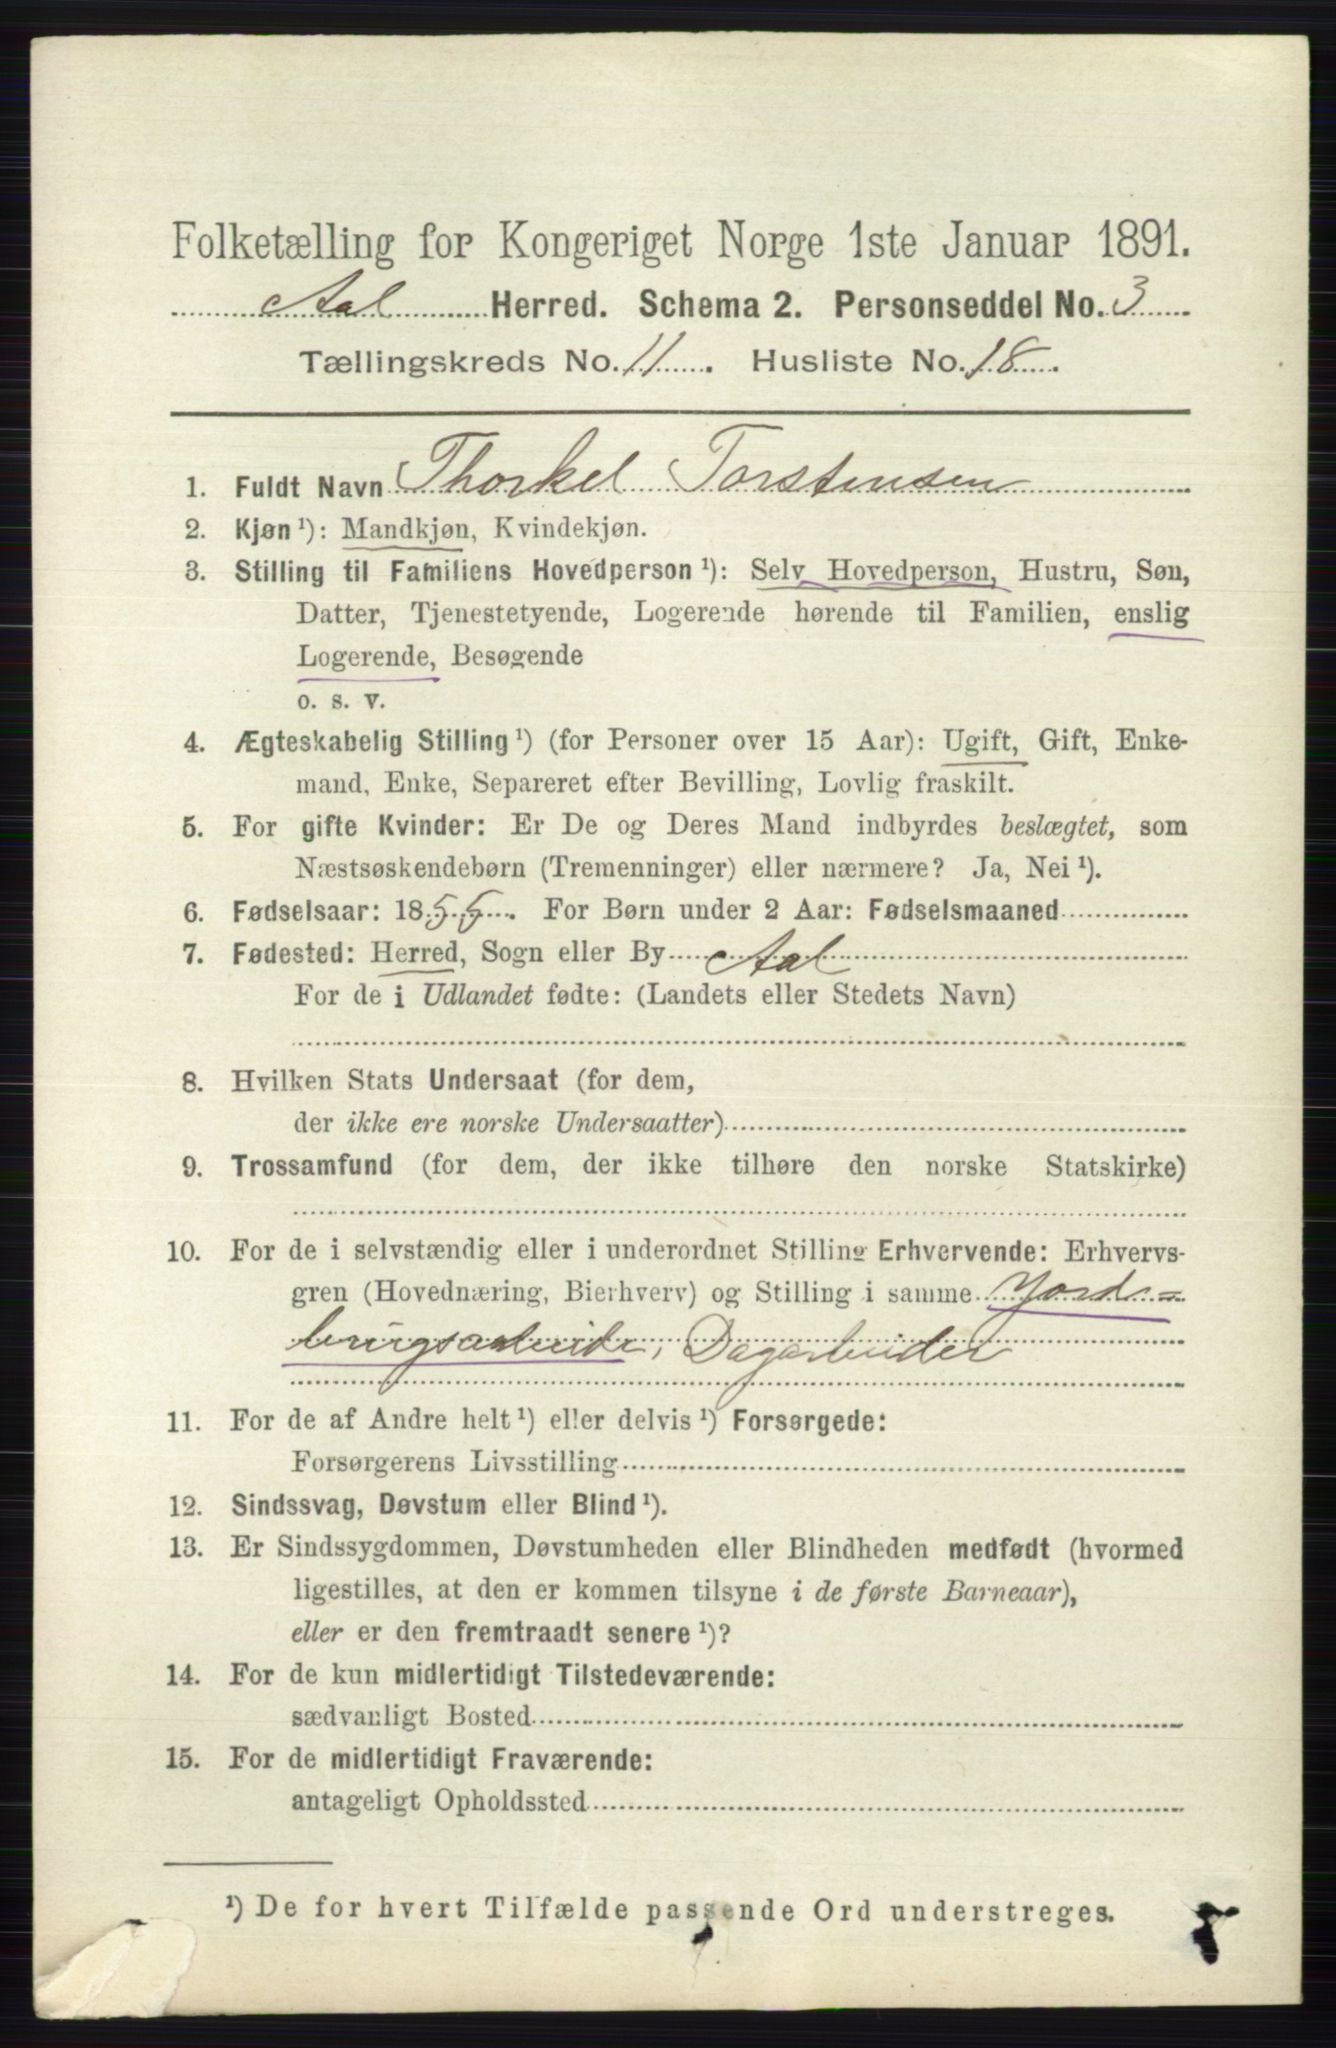 Folketælling for Kongeriget Norge 1ste Januar 1891.
Aal Herred. Schema 2. Personseddel No. 3
Tællingskreds No. 11. Husliste No. 18.
1. Fuldt Navn Thorkel Torstensen
2. Kjøn ¹): Mandkjøn, Kvindekjøn.
3. Stilling til Familiens Hovedperson ¹): Selv Hovedperson, Hustru, Søn,
Datter, Tjenestetyende, Logerende hørende til Familien, enslig
Logerende, Besøgende
o. s. v.
4. Ægteskabelig Stilling ¹) (for Personer over 15 Aar): Ugift, Gift, Enke-
mand, Enke, Separeret efter Bevilling, Lovlig fraskilt.
5. For gifte Kvinder: Er De og Deres Mand indbyrdes beslægtet, som
Næstsøskendebørn (Tremenninger) eller nærmere? Ja, Nei ¹).
6. Fødselsaar: 1855. For Børn under 2 Aar: Fødselsmaaned
7. Fødested: Herred, Sogn eller By Aal
For de i Udlandet fødte: (Landets eller Stedets Navn)
8. Hvilken Stats Undersaat (for dem,
der ikke ere norske Undersaatter)
9. Trossamfund (for dem, der ikke tilhøre den norske Statskirke)
10. For de i selvstændig eller i underordnet Stilling Erhvervende: Erhvervs-
gren (Hovednæring, Bierhverv) og Stilling i samme Jord-
brugsarbeide, Dagarbeider
11. For de af Andre helt ¹) eller delvis ¹) Forsørgede:
Forsørgerens Livsstilling
12. Sindssvag, Døvstum eller Blind ¹).
13. Er Sindssygdommen, Døvstumheden eller Blindheden medfødt (hvormed
ligestilles, at den er kommen tilsyne i de første Barneaar),
eller er den fremtraadt senere ¹)?
14. For de kun midlertidigt Tilstedeværende:
sædvanligt Bosted
15. For de midlertidigt Fraværende:
antageligt Opholdssted
¹) De for hvert Tilfælde passende Ord understreges.